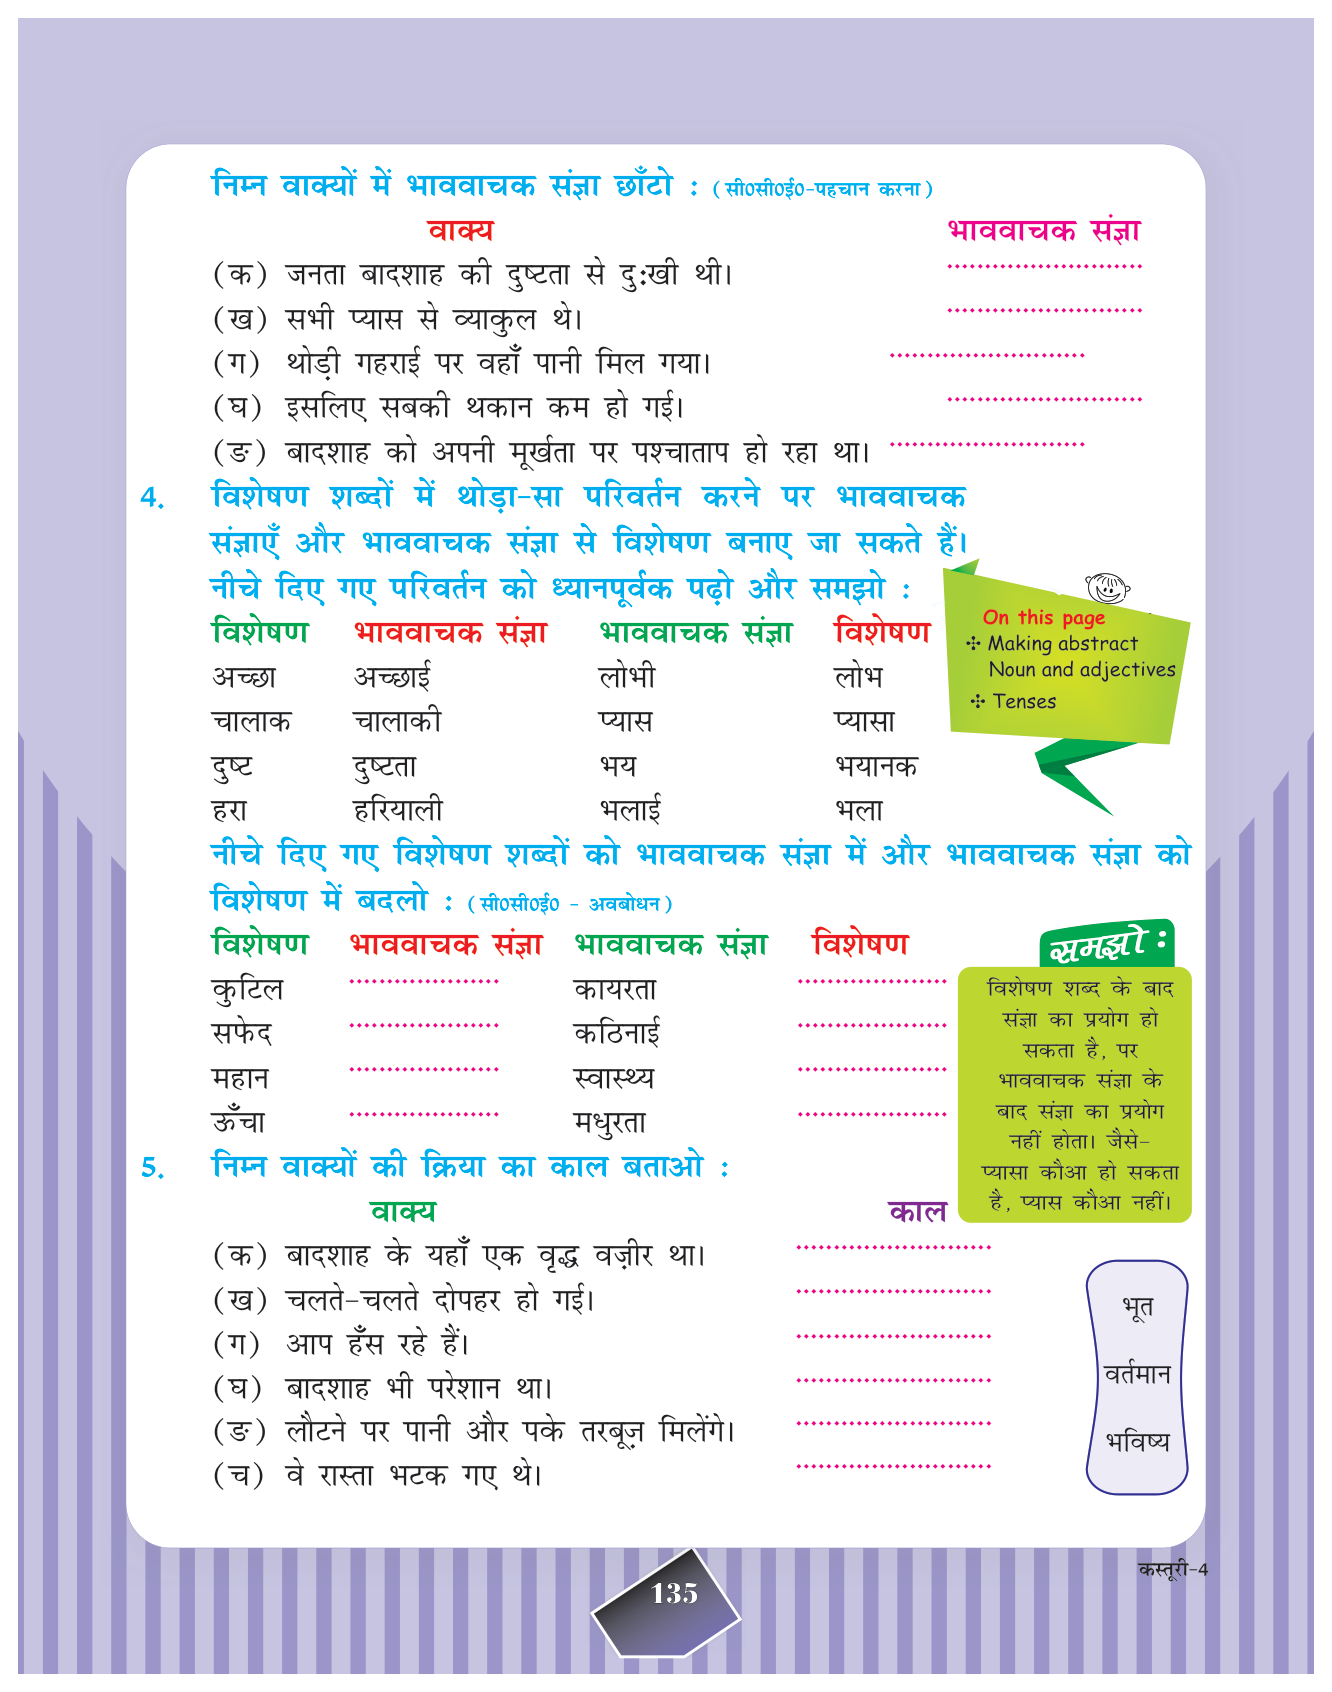 निम्न वाक्यों में भाववाचक संज्ञा छाँटो : (सी०सी०ई०-पहचान करना)
वाक्य भाववाचक संज्ञा
(क) जनता बादशाह की दुष्टता से दुःखी थी। ..........................
(ख) सभी प्यास से व्याकुल थे। ..........................
(ग) थोड़ी गहराई पर वहाँ पानी मिल गया। ..........................
(घ) इसलिए सबकी थकान कम हो गई। ..........................
(ङ) बादशाह को अपनी मूर्खता पर पश्चाताप हो रहा था। ..........................
4. विशेषण शब्दों में थोड़ा-सा परिवर्तन करने पर भाववाचक
संज्ञाएँ और भाववाचक संज्ञा से विशेषण बनाए जा सकते हैं।
नीचे दिए गए परिवर्तन को ध्यानपूर्वक पढ़ो और समझो :
विशेषण भाववाचक संज्ञा भाववाचक संज्ञा विशेषण
अच्छा अच्छाई लोभी लोभ
चालाक चालाकी प्यास प्यासा
दुष्ट दुष्टता भय भयानक
हरा हरियाली भलाई भला
On this page
✣ Making abstract
Noun and adjectives
✣ Tenses
नीचे दिए गए विशेषण शब्दों को भाववाचक संज्ञा में और भाववाचक संज्ञा को
विशेषण में बदलो : (सी०सी०ई० - अवबोधन)
विशेषण भाववाचक संज्ञा भाववाचक संज्ञा विशेषण
कुटिल .................... कायरता ....................
सफेद .................... कठिनाई ....................
महान .................... स्वास्थ्य ....................
ऊँचा .................... मधुरता ....................
समझो :
विशेषण शब्द के बाद
संज्ञा का प्रयोग हो
सकता है, पर
भाववाचक संज्ञा के
बाद संज्ञा का प्रयोग
नहीं होता। जैसे-
प्यासा कौआ हो सकता
है, प्यास कौआ नहीं।
5. निम्न वाक्यों की क्रिया का काल बताओ :
वाक्य काल
(क) बादशाह के यहाँ एक वृद्ध वज़ीर था। ..........................
(ख) चलते-चलते दोपहर हो गई। ..........................
(ग) आप हँस रहे हैं। ..........................
(घ) बादशाह भी परेशान था। ..........................
(ङ) लौटने पर पानी और पके तरबूज़ मिलेंगे। ..........................
(च) वे रास्ता भटक गए थे। ..........................
भूत
वर्तमान
भविष्य
कस्तूरी-4
135